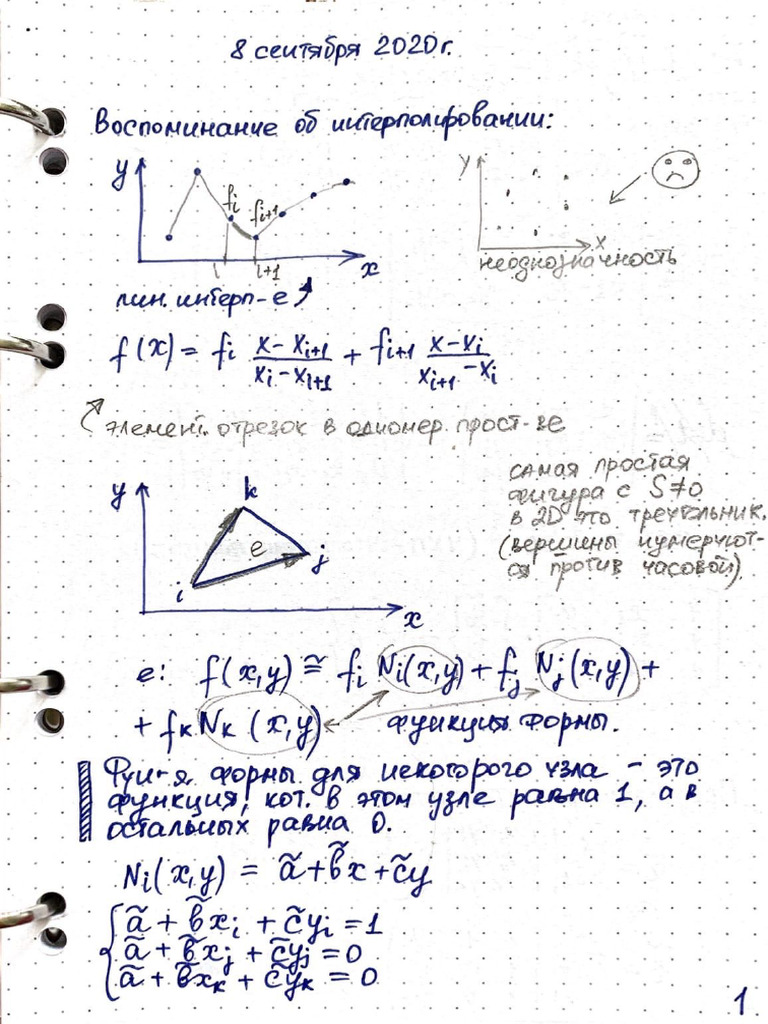 8 сентября 2020г.
Воспоминание об интерполировании:
y
fi
fi+1
i
i+1
x
y
x
неоднозначность
лин. интерп-е
f(x) = fi (x-xi+1)/(xi-xi+1) + fi+1 (x-xi)/(xi+1-xi)
элемент. отрезок в одномер. прост-ве
самая простая
фигура с S≠0
в 2D это треугольник.
(вершины нумеруют-
ся против часовой)
y
k
e
j
i
x
e: f(x,y) ≅ fi Ni(x,y) + fj Nj(x,y) +
+ fk Nk (x,y) функция формы.
Фун-я формы для некоторого узла - это
функция, кот. в этом узле равна 1, а в
остальных равна 0.
Ni(x,y) = ã + b̃x + c̃y
ã + b̃xi + c̃yi = 1
ã + b̃xj + c̃yj = 0
ã + b̃xk + c̃yk = 0
1